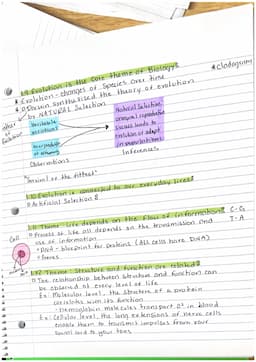 1.9 Evolution is the Core theme of Biology
* Evolution - changes of species over time
* Darwin synthesised the theory of evolution
by NATURAL Selection
* cladogram
Heritable
variations
Overproduction
of offspring
Observations
Natural Selection:
unequal reproductive
success leads to
evolution of adapt
in populations
Inferences
"Survival of the fittest"
1.10 Evolution is connected to our everyday lives
Artificial Selection
1.11 Theme: Life depends on the flow of information
C-G
T-A
Process of life all depends on the transmission and
use of information
Cell
DNA - blueprint for proteins (All cells have DNA)
Genes
1.12 Theme: Structure and function are related
The relationship between structure and function can
be observed at every level of life
Ex: Molecular level, the structure of a protein
correlates with its function
Hemoglobin molecules transport O2 in blood
Ex: Cellular level, the long extensions of nerve cells
enable them to transmit impulses from your
spinal cord to your toes